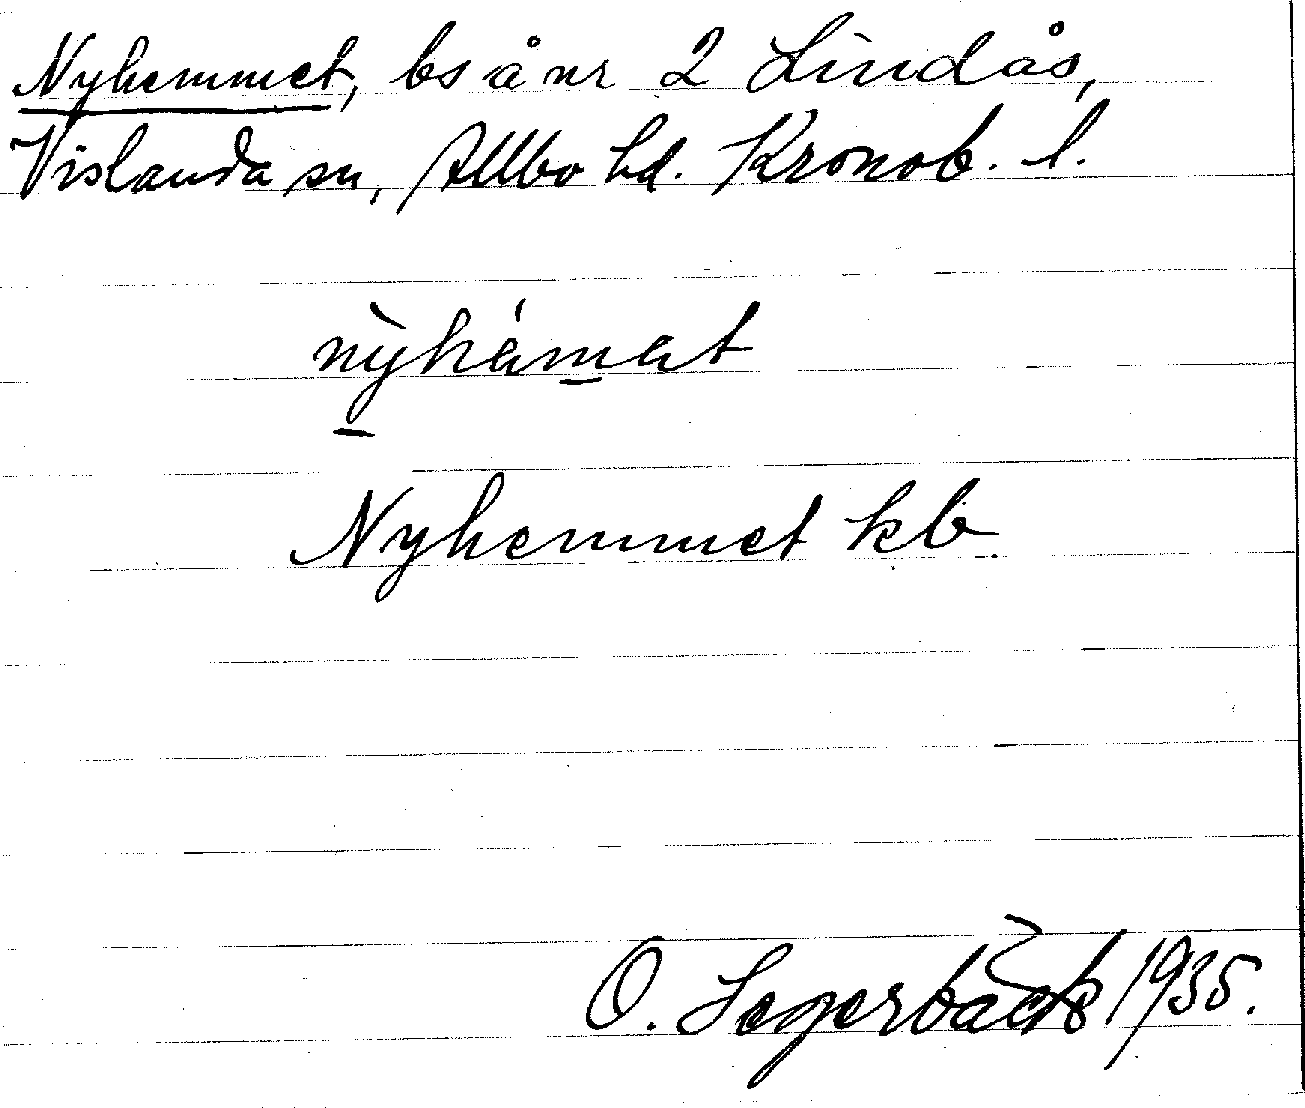 Nyhemmet, bs å nr 2 Lindås,
Vislanda sn, Allbo hd. Kronob. l.
nỳhámat
Nyhemmet kb.
O. Segerbäck 1935.